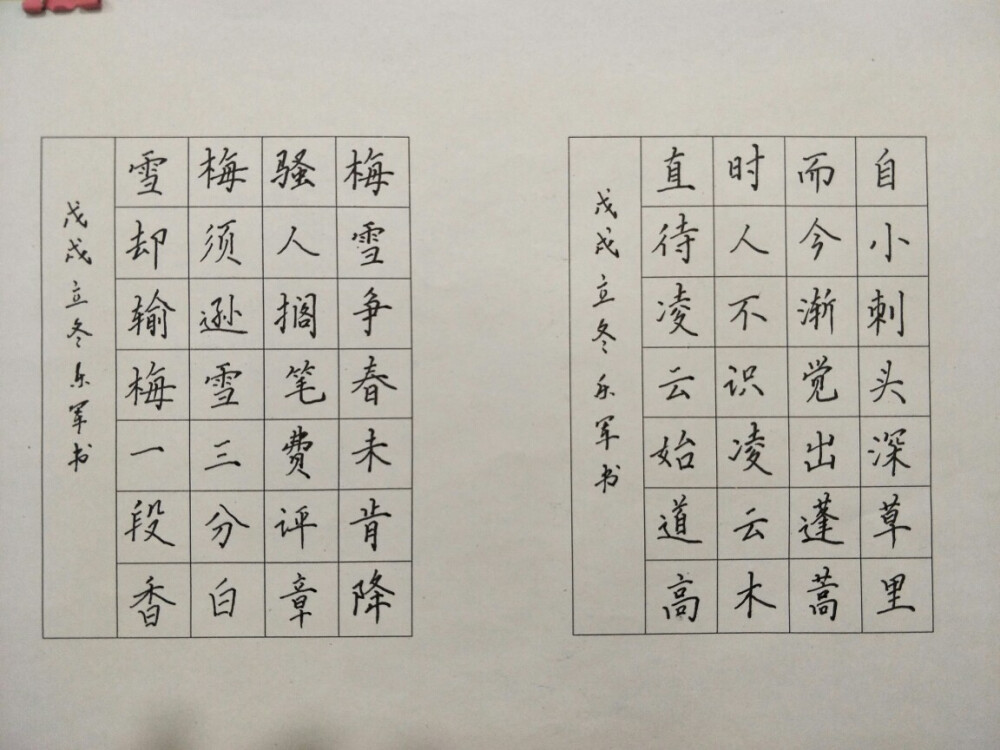 自小刺头深草里
而今渐觉出蓬蒿
时人不识凌云木
直待凌云始道高
戊戌立冬乐军书
梅雪争春未肯降
骚人搁笔费评章
梅须逊雪三分白
雪却输梅一段香
戊戌立冬乐军书